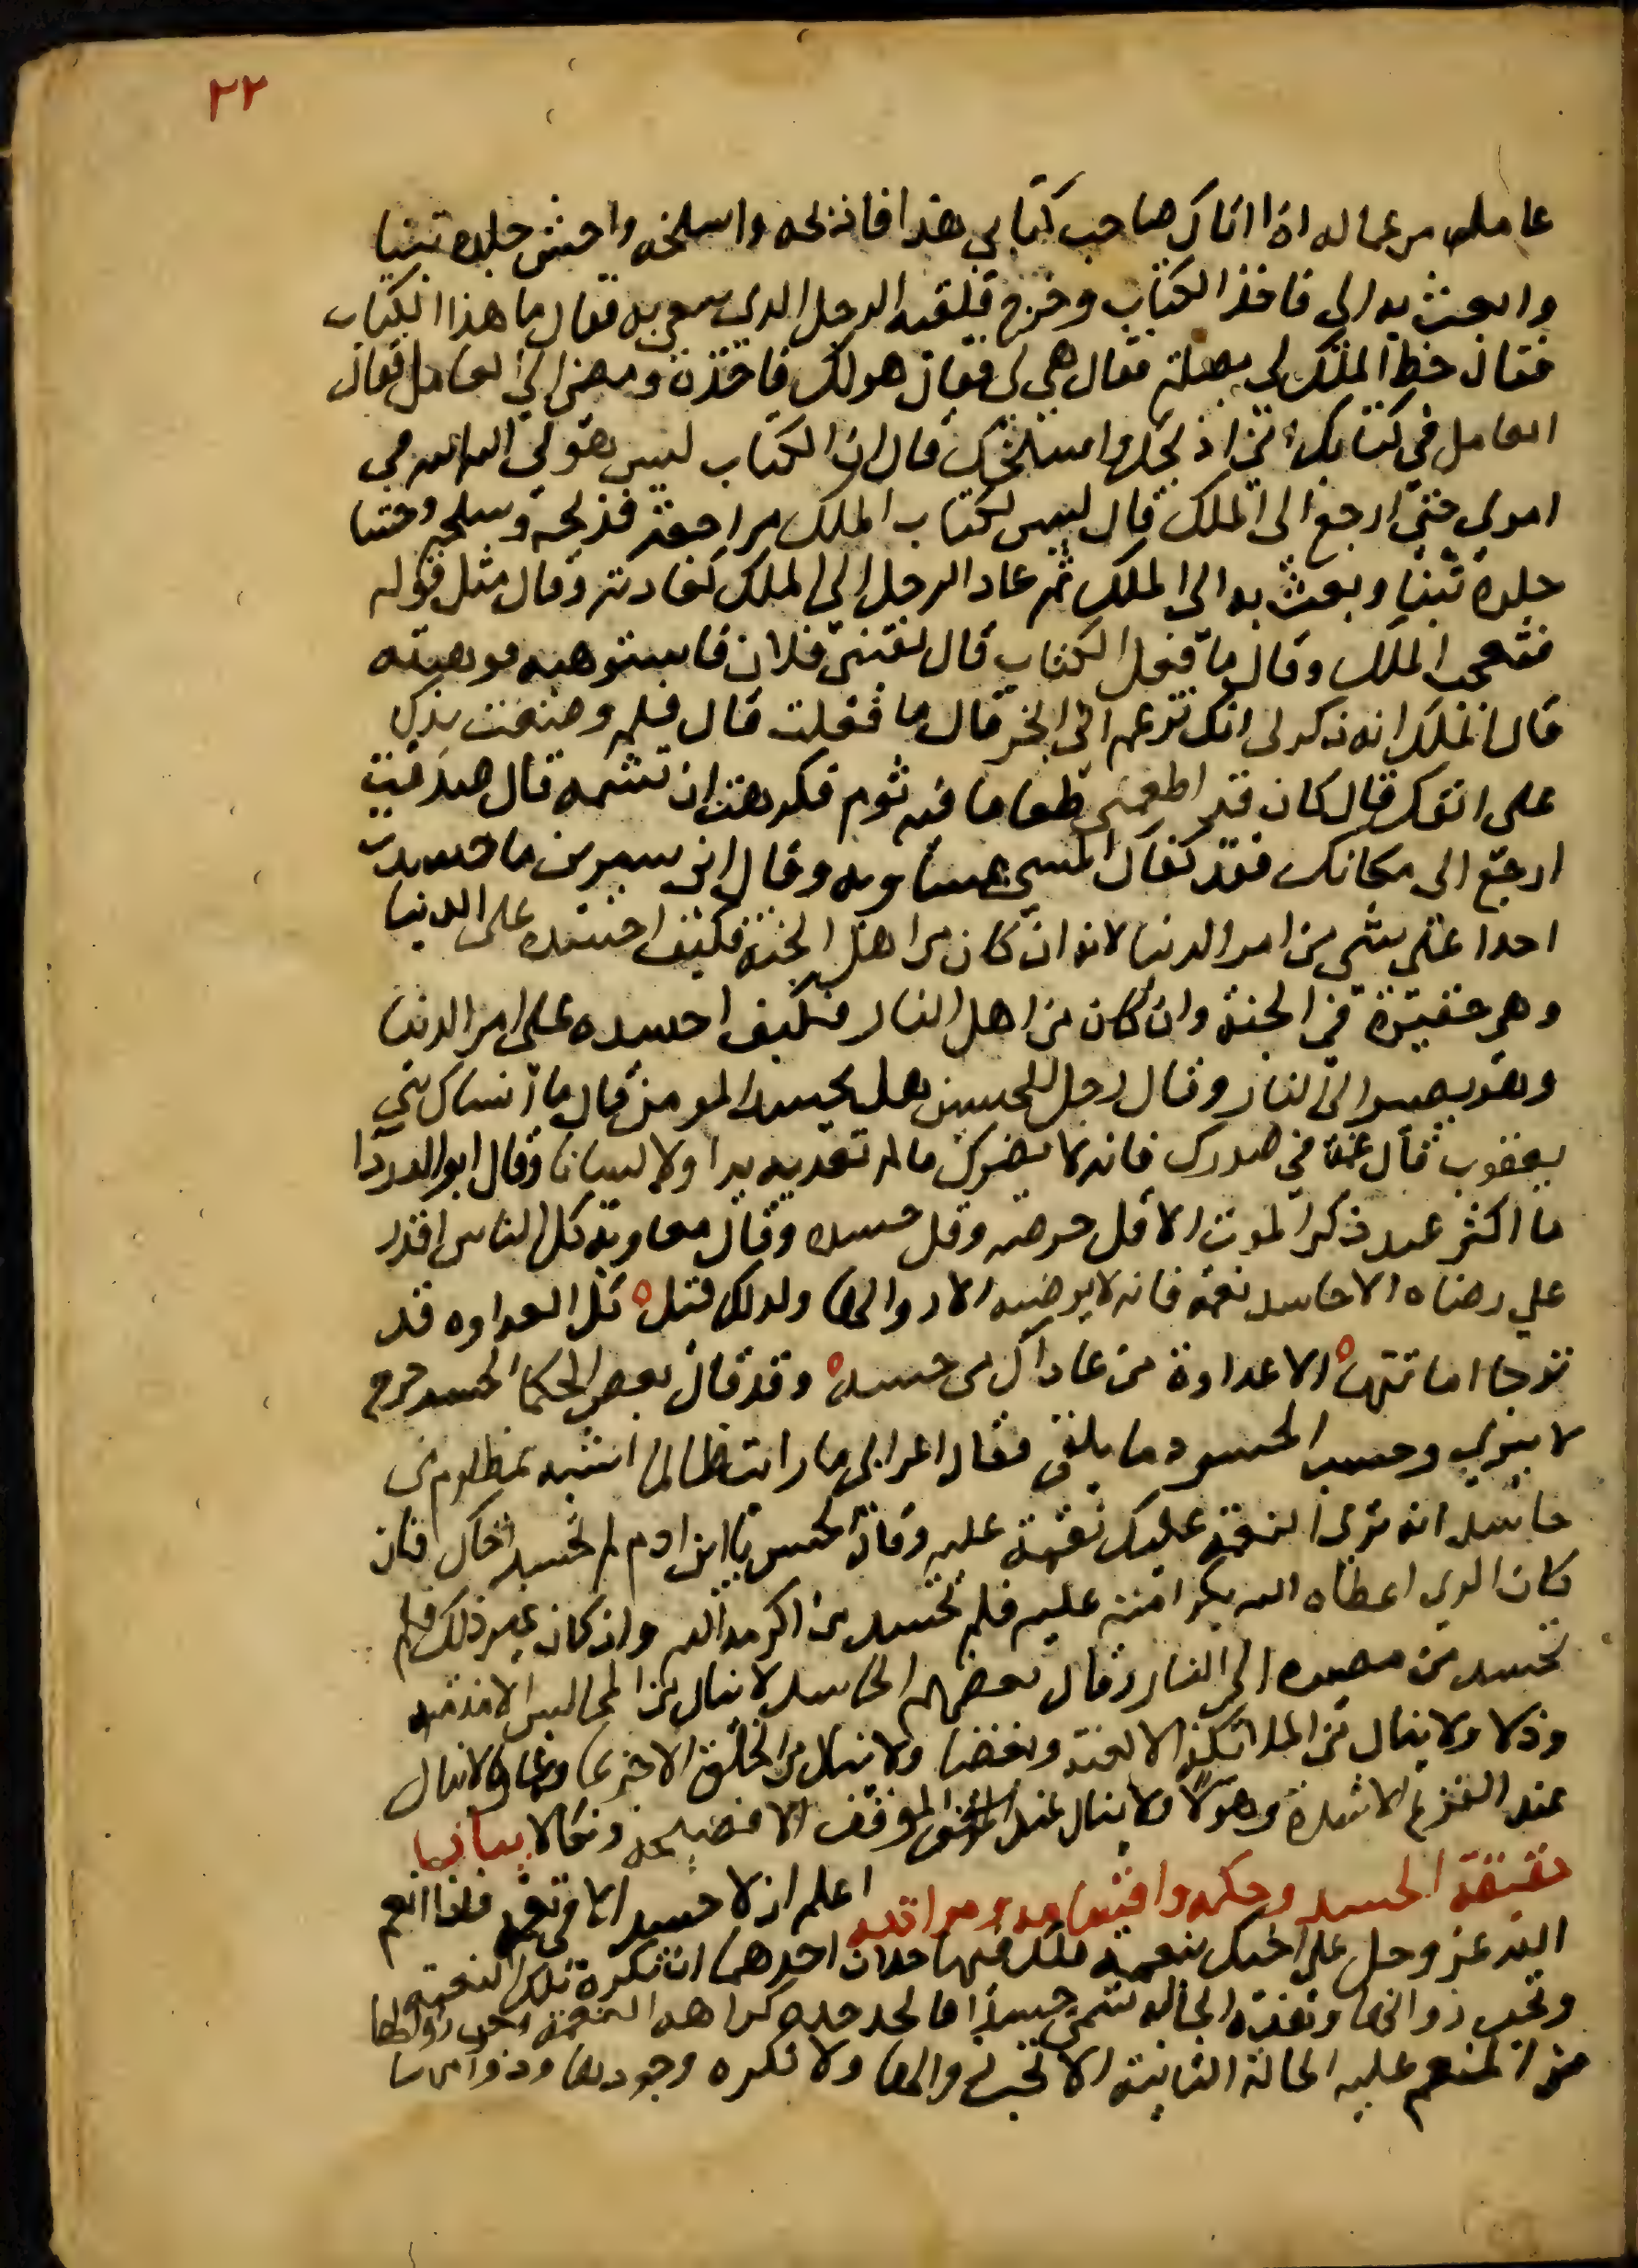 ٢٢
عامله من عماله اذا اتاك صاحب كتابي هذا فاذبحه واسلخه واحش جلده تبنا
وابعث به الي فاخذ الكتاب وخرج فلقيه الرجل الدي سعى به فقال ما هذا الكتاب
فقال خط الملك لي بصلة فقال هي لي فقال هو لك فاخذه ومضى الى العامل فقال
العامل في كتابك اني اذبحك واسلخك قال ان الكتاب ليس هو لي الله الله في
امري حتى ارجع الى الملك قال ليس لكتاب الملك مراجعة فذبحه وسلخه وحشا
جلده تبنا وبعث به الى الملك ثم عاد الرجل الى الملك كعادته وقال مثل قوله
فتعجب الملك وقال ما فعل الكتاب قال لقيني فلان فاستوهبه فوهبته
قال الملك انه ذكر لي انك تزعم اني ابخر قال ما فعلت قال فلم وضعت يدك
على انفك قال كان قد اطعمني طعاما فيه ثوم فكرهت ان تشمه قال صدقت
ارجع الى مكانك فقد كفاك المسي مساويه وقال ابن سيرين ما حسدت
احدا على شي من امر الدنيا لانه ان كان من اهل الجنة فكيف احسده على الدنيا
وهي حقيرة في الجنة وان كان من اهل النار فكيف احسده على امر الدنيا
وهو يصير الى النار وقال رجل للحسن هل يحسد المومن قال ما انساك بني
يعقوب قال غمه في صدرك فانه لا يضرك ما لم تعد به يدا ولا لسانا وقال ابو الدردا
ما اكثر عبد ذكر الموت الا قل حرصه وقل حسده وقال معاوية كل الناس اقدر
على رضاه الا حاسد نعمة فانه لا يرضيه الا زوالها ولدلك قيل ه كل العداوه قد
ترجا اماتتها ه الا عداوة من عاداك من حسد ه وقد قال بعض الحكما الحسد جرح
لا يبري وحسب الحسود ما يلقى فقال اعرابي ما رايت ظالما اشبه بمظلوم من
حاسد انه يرى النعمة عليك نقمة عليه وقال الحسن يا ابن ادم لم تحسد اخاك فان
كان الدي اعطاه الله لكرامته عليه فلم تحسد من اكرمه الله وان كان غير ذلك فلم
تحسد من مصيره الى النار وقال بعضهم الحاسد لا ينال من المجالس الا مذمة
وذلا ولا ينال من الملائكة الا لعنة وبغضا ولا ينال من الخلق الا جزعا وغما ولا ينال
عند النزع الا شدة وهولا ولا ينال عند الموقف الا فضيحة ونكالا بيان
حقيقة الحسد وحكمه واقسامه ومراتبه اعلم ان لا حسد الا في نعمة فاذا انعم
الله عز وجل على اخيك بنعمه فلك فيها حالان احدهما ان تكره تلك النعمة
وتحب زوالها وهذه الحاله تسمى حسدا فالحسد حده كراهه النعمة وحب زوالها
من المنعم عليه الحالة الثانية الا تحب زوالها ولا تكره وجودها ودوامها